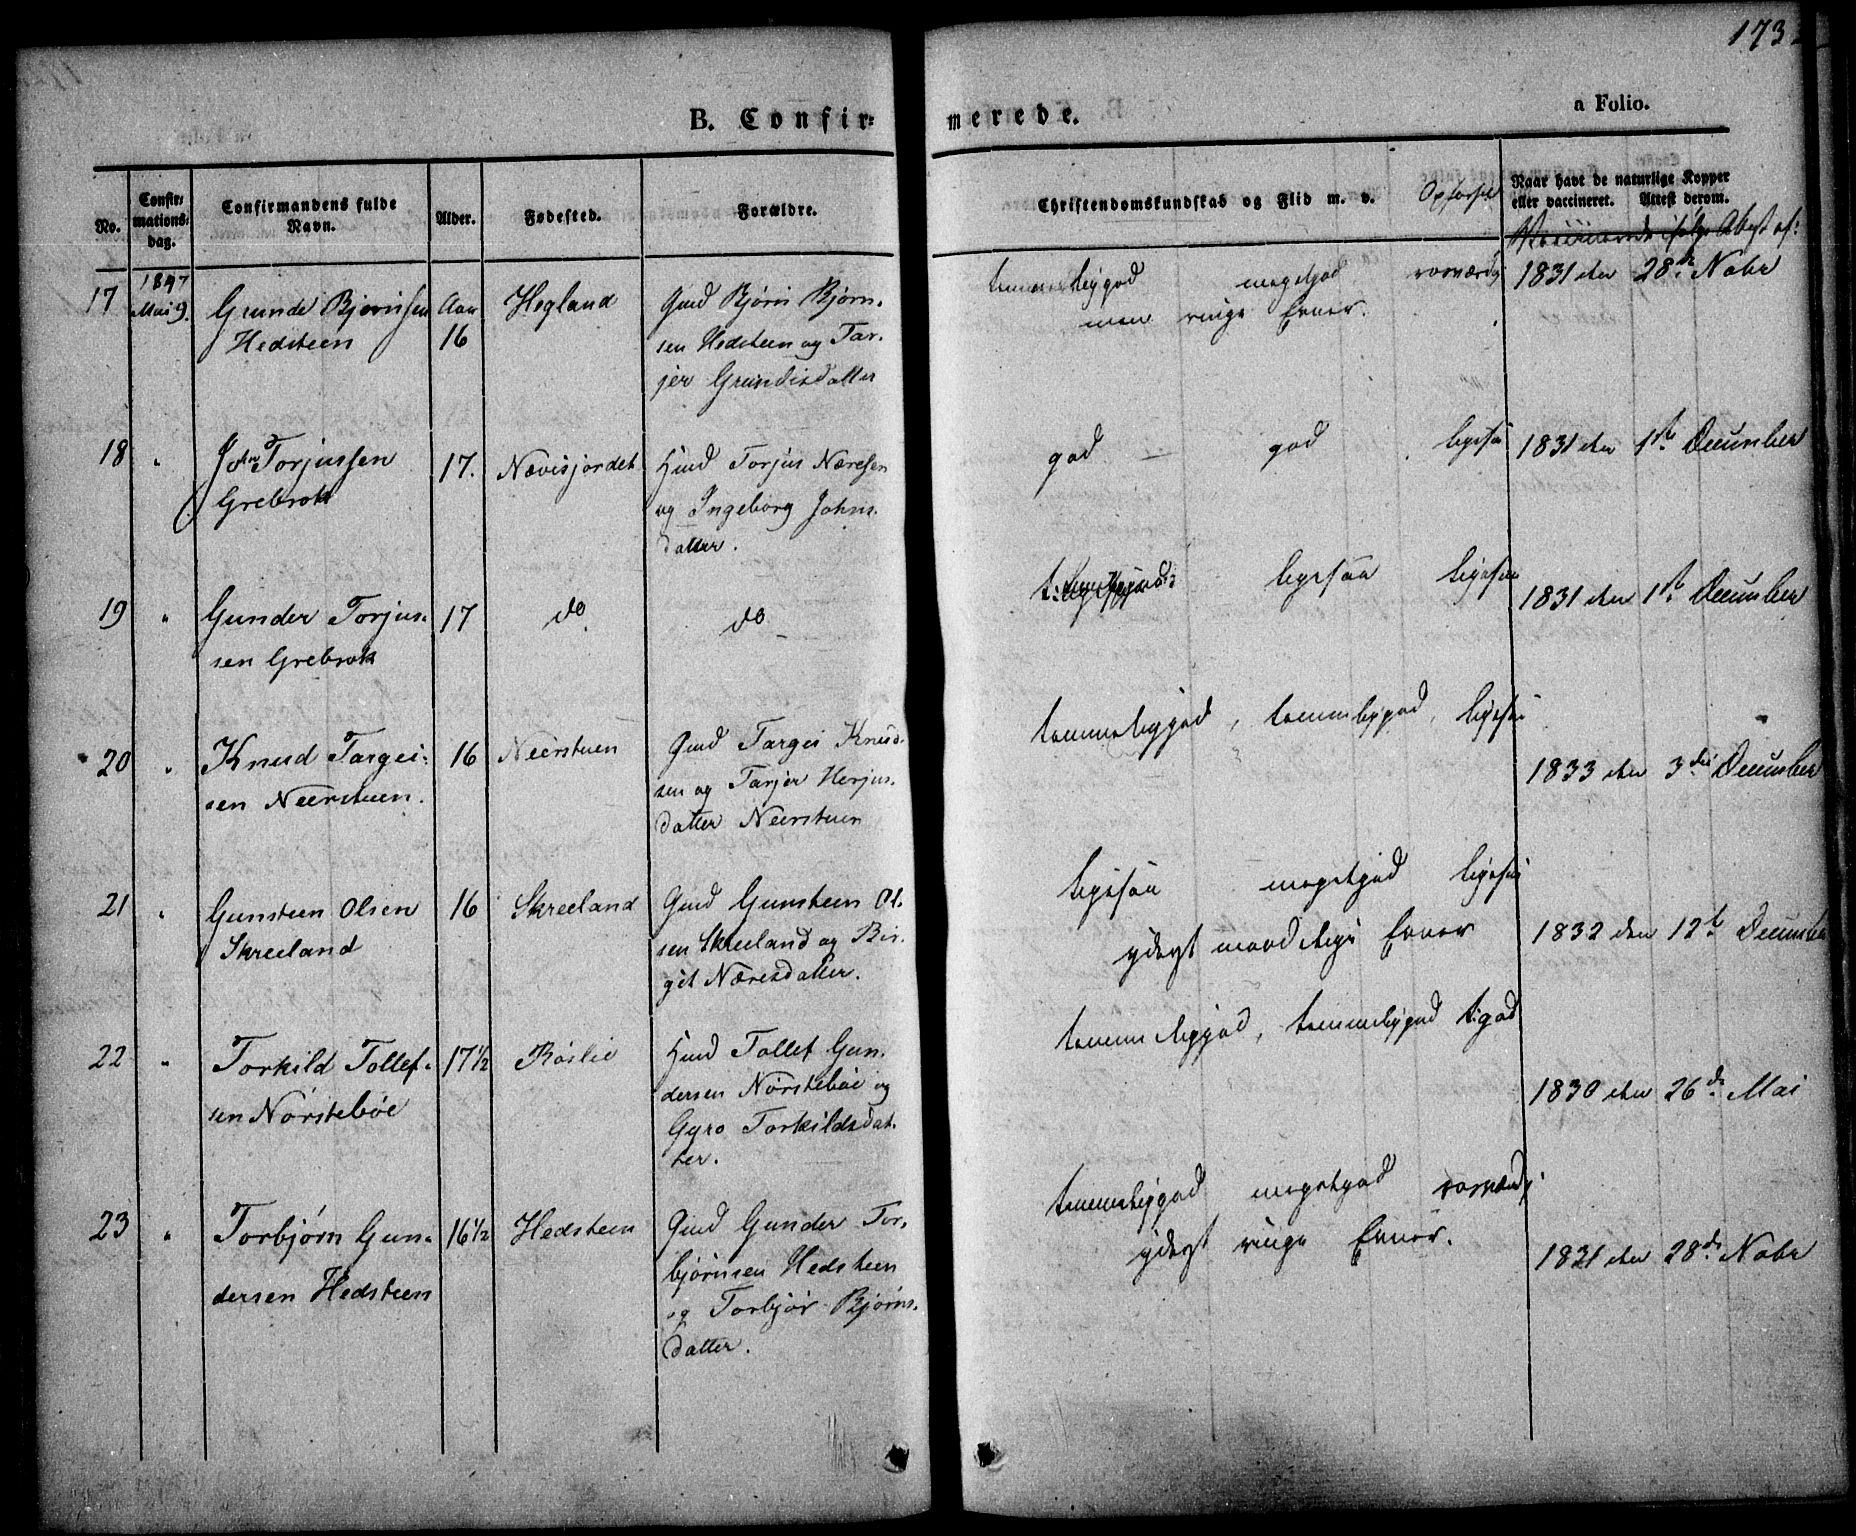 173
B. Confir-
merede.
a Folio.
No.
Confir-
mations-
dag.
Confirmandens fulde
Navn.
Alder.
Fødested.
Forældre.
Christendomskundskab og Flid m. v.
Opførsel
Naar havt de naturlige Kopper
eller vaccineret. Attest derom.
Vaccinerede ifølge Attest af:
17
1847
Mai 9.
Grunde Bjørnsen
Hedsteen
Aar
16
Hegland
Gmd Bjørn Bjørn-
sen Hedsteen og Tar-
jer Grundisdatter
temmeliggod megetgod roesværdig
men ringe Evner.
1831 den 28de Nobr
18
"
John Torjussen
Grebrok
17.
Nævisjordet
Hmd Torjus Næresen
og Ingeborg Johns-
datter.
god god ligesaa
1831 den 1ste December
19
"
Gunder Torjus-
sen Grebrok
17
do
do
ligesaa ligesaa
1831 den 1ste December
20
"
Knud Targei-
sen Neerstuen.
16
Neerstuen
Gmd Targei Knud-
sen og Tarjer Herjus-
datter Neerstuen
temmeliggod, temmeliggod, ligesaa
1833 den 3die December
21
"
Gunsteen Olsen
Skreeland
16
Skreeland
Gmd Gunsteen Ol-
sen Skreeland og Bir-
git Næresdatter.
ligesaa megetgod ligesaa
yderst maadelige Evner
1832 den 12te December
22
"
Torkild Tollef-
sen Nørstebøe
17½
Røslie
Hmd Tollef Gun-
dersen Nørstebøe og
Gyro Torkildsdat-
ter.
temmeliggod, temmeliggod t: god
1830 den 26de Mai
23
"
Torbjørn Gun-
dersen Hedsteen
16½
Hedsteen
Gmd Gunder Tor-
bjørnsen Hedsteen
og Torbjør Bjørns-
datter.
temmeliggod megetgod roesværdig
yderst ringe Evner.
1831 den 28de Nobr